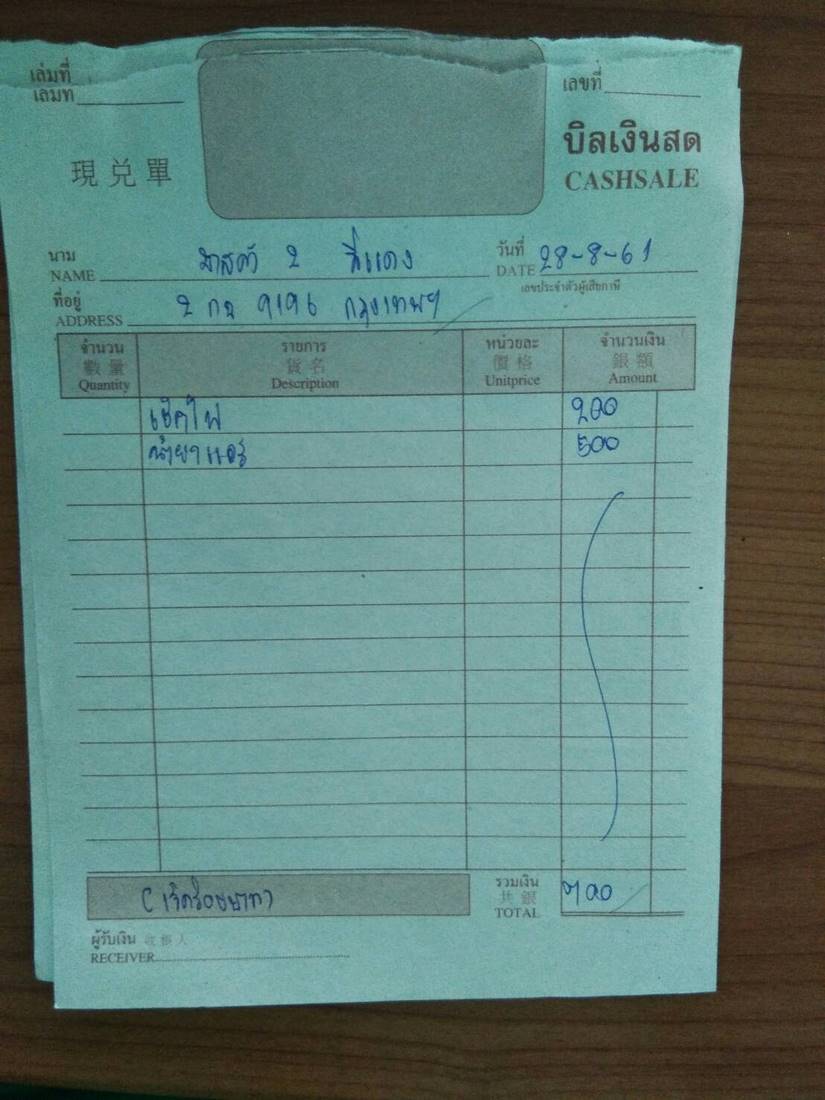 เล่มที่
เล่มที่ เลขที่
現兑單 บิลเงินสด
CASHSALE
นาม มาสด้า 2 สีแดง วันที่ 28-8-61
NAME DATE
เลขประจำตัวผู้เสียภาษี
ที่อยู่ 2 กฉ 9196 กรุงเทพฯ
ADDRESS
จำนวน รายการ หน่วยละ จำนวนเงิน
數量 貨名 價格 銀額
Quantity Description Unitprice Amount
เช็คไฟ 200
น้ำยาแอร์ 500
(เจ็ดร้อยบาท) รวมเงิน 700
共銀
TOTAL
ผู้รับเงิน 收銀人
RECEIVER